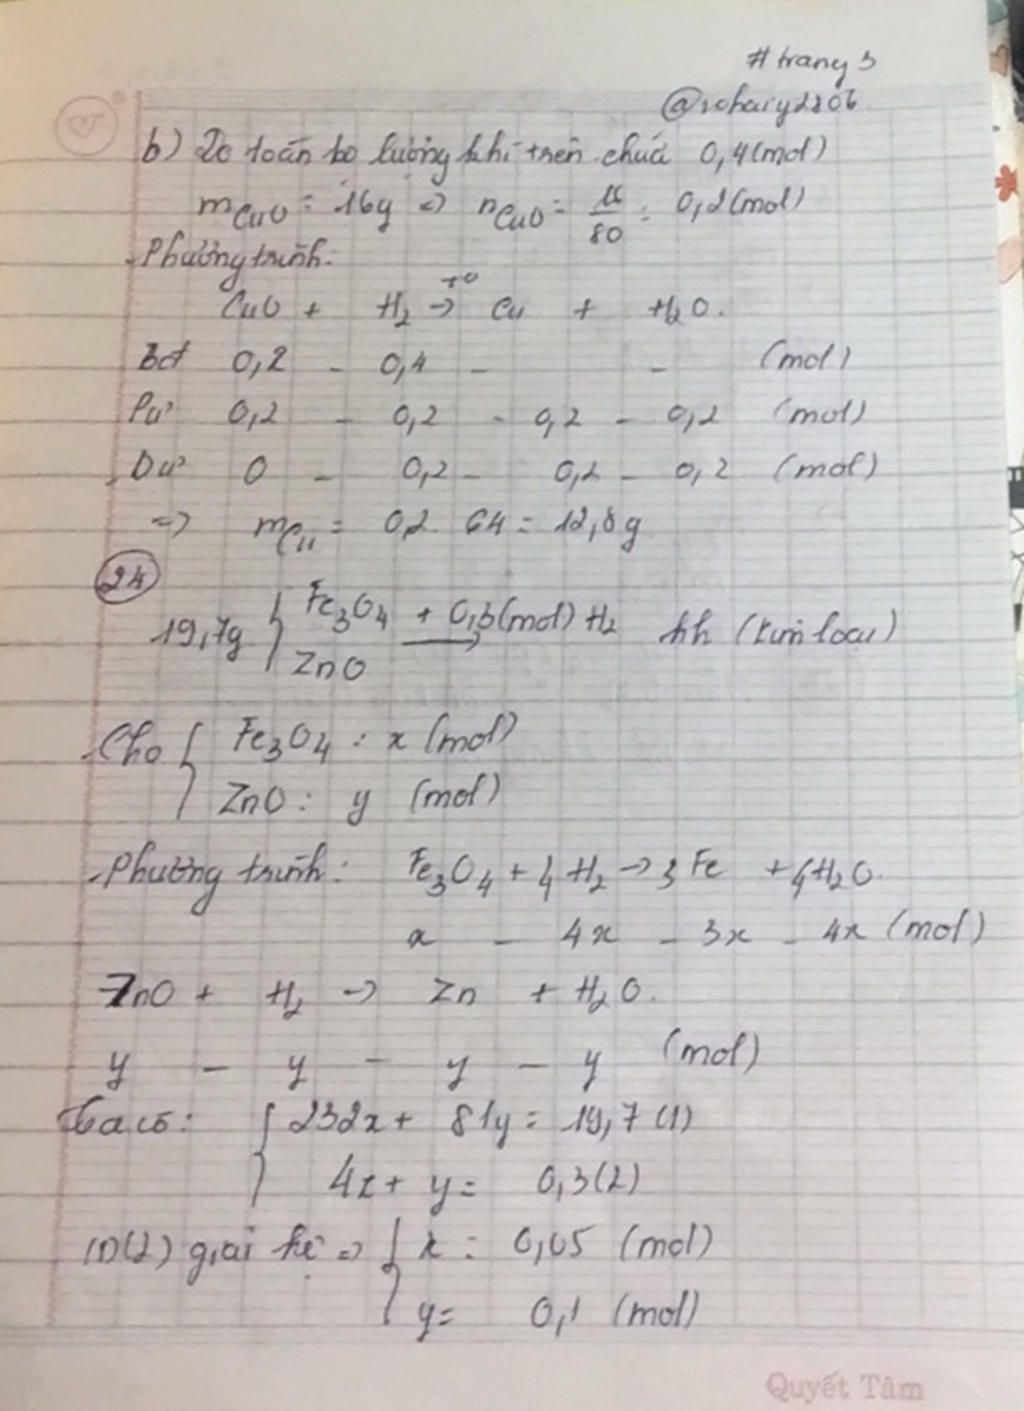 #trang 3
@sohaiy2806
b) Do toàn bộ lượng khí trên chứa 0,4(mol)
mCuO = 16g => nCuO = 16/80 = 0,2(mol)
- Phương trình:
CuO + H₂ →(t°) Cu + H₂O.
Bđ 0,2 - 0,4 - - (mol)
Pư 0,2 - 0,2 - 0,2 - 0,2 (mol)
Dư 0 - 0,2 - 0,2 - 0,2 (mol)
=> mCu = 0,2 . 64 = 12,8g
24
19,7g { Fe₃O₄ + 0,3(mol) H₂ → hh (kim loại)
ZnO
- Cho { Fe₃O₄ : x (mol)
ZnO : y (mol)
- Phương trình: Fe₃O₄ + 4H₂ → 3Fe + 4H₂O.
x - 4x - 3x - 4x (mol)
ZnO + H₂ → Zn + H₂O.
y - y - y - y (mol)
Ta có: { 232x + 81y = 19,7 (1)
4x + y = 0,3(2)
(1)(2) giải hệ => { x = 0,05 (mol)
y = 0,1 (mol)
Quyết Tâm